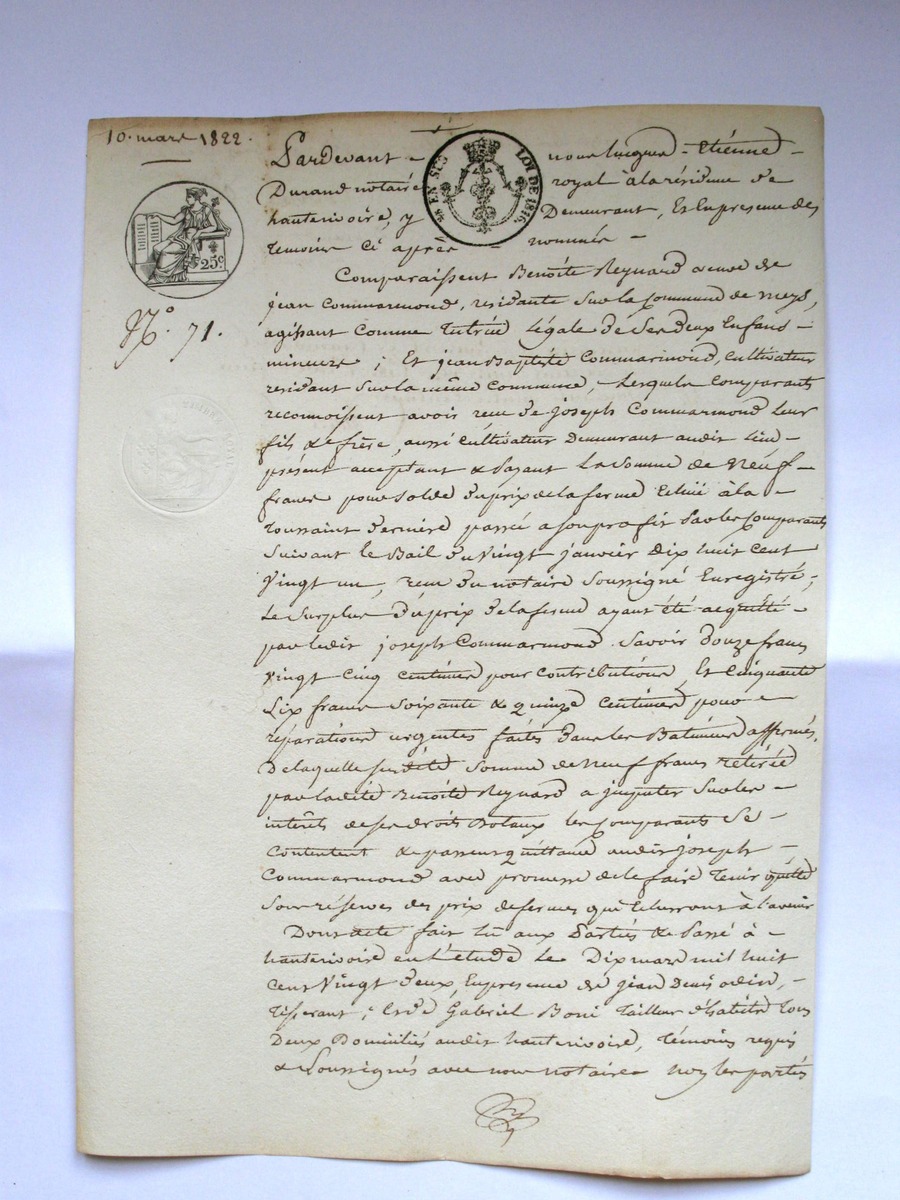 10. mars 1822.
Pardevant nous Jacques Etienne
Durand notaire royal à la résidence de
hauterivoire, y Demeurant, Et En presence des
temoins ci après nommés
EN SUS LOI DE 1816
25c
N.° 71.
Comparaissent Benoîte Reynard veuve de
jean Commarmond, residante sur la Commune de meys,
agissant comme tutrice légale de Ses deux Enfans
mineurs ; Et jean Baptiste Commarmond, Cultivateur
residant sur la même commune, Lesquels Comparants
reconnoissent avoir reçu de joseph Commarmond leur
fils & frère, aussi Cultivateur demeurant audit lieu
présent acceptant & payant la somme de Neuf
francs pour solde du prix de la ferme échue à la
toussaint derniere passée a son profit par les Comparants
suivant le Bail du vingt janvier dix huit cent
vingt un, reçu du notaire soussigné Enregistré ;
Le surplus du prix de la ferme ayant été acquitté
par ledit joseph Commarmond. Savoir douze francs
vingt cinq centimes pour contributions, Et Cinquante
six francs soixante & quinze centimes pour
réparations urgentes faites dans les Batiments affermés,
De laquelle susdite somme de Neuf francs retirée
par ladite Benoîte Reynard a imputer sur les
intérêts de ses droits Dotaux les Comparants se
contentent & passent quittance audit joseph
Commarmond avec promesse de le faire tenir quitte
sous réserves des prix de fermes qui écherront à l'avenir
Dont acte fait lu aux Parties & Passé à
hauterivoire en l'étude le Dix mars mil huit
cent vingt deux, En presence de jean Denis odin,
tisserant ; Et de Gabriel Boni tailleur d'habits tous
Deux Domiciliés audit hauterivoire, témoins requis
& soussignés avec nous notaire non les parties